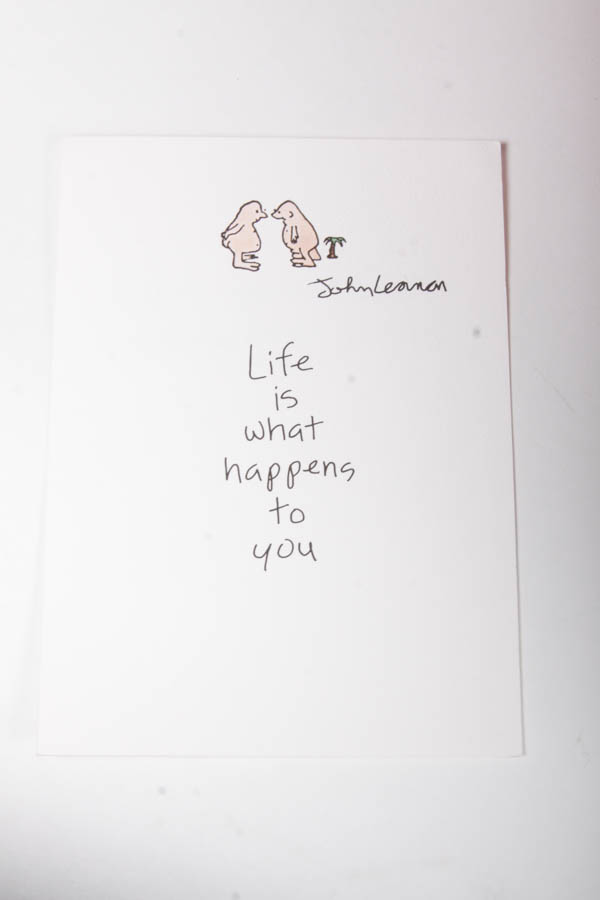 John Lennon
Life
is
what
happens
to
you